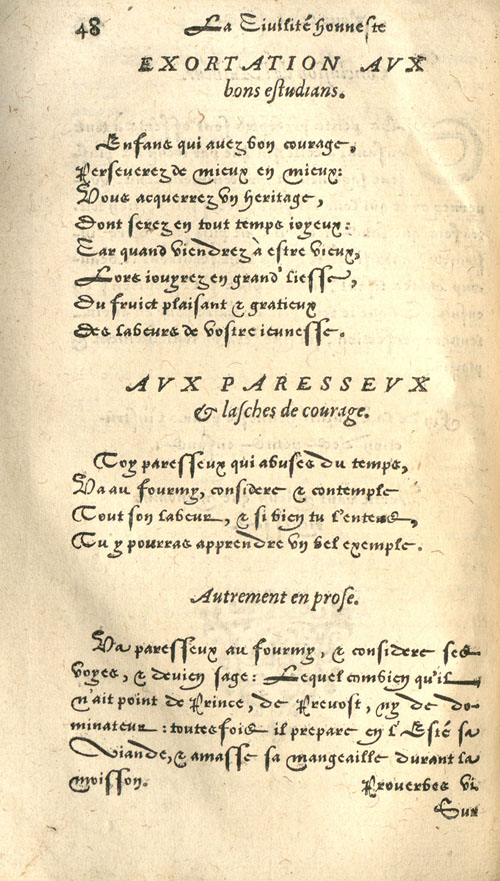 48 La Ciuilité honneste
EXORTATION AVX
bons estudians.
Enfans qui auez bon courage,
Perseuerez de mieux en mieux:
Vous acquerrez vn heritage,
Dont serez en tout temps ioyeux:
Car quand viendrez à estre vieux,
Lors iouyrez en grand' liesse,
Du fruict plaisant & gratieux
Des labeurs de vostre ieunesse.
AVX PARESSEVX
& lasches de courage.
Toy paresseux qui abuses du temps,
Va au fourmy, considere & contemple
Tout son labeur, & si bien tu l'entens,
Tu y pourras apprendre vn bel exemple.
Autrement en prose.
Va paresseux au fourmy, & considere ses
voyes, & deuien sage: Lequel combien qu'il
n'ait point de Prince, de Preuost, ny de do-
minateur: toutesfois il prepare en l'Esté sa
Viande, & amasse sa mangeaille durant la
moisson. Prouerbes vi
Sur